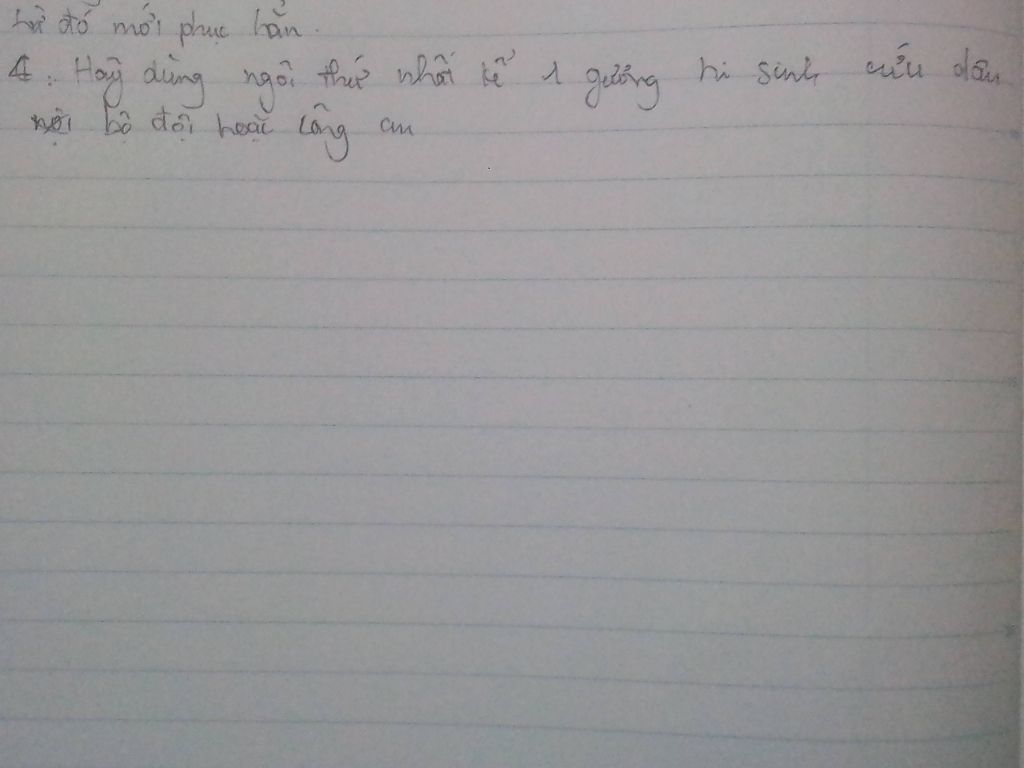 từ đó mới phục hẳn.
4. Hãy dùng ngôi thứ nhất kể 1 gương hi sinh cứu dân
bộ đội hoặc công an